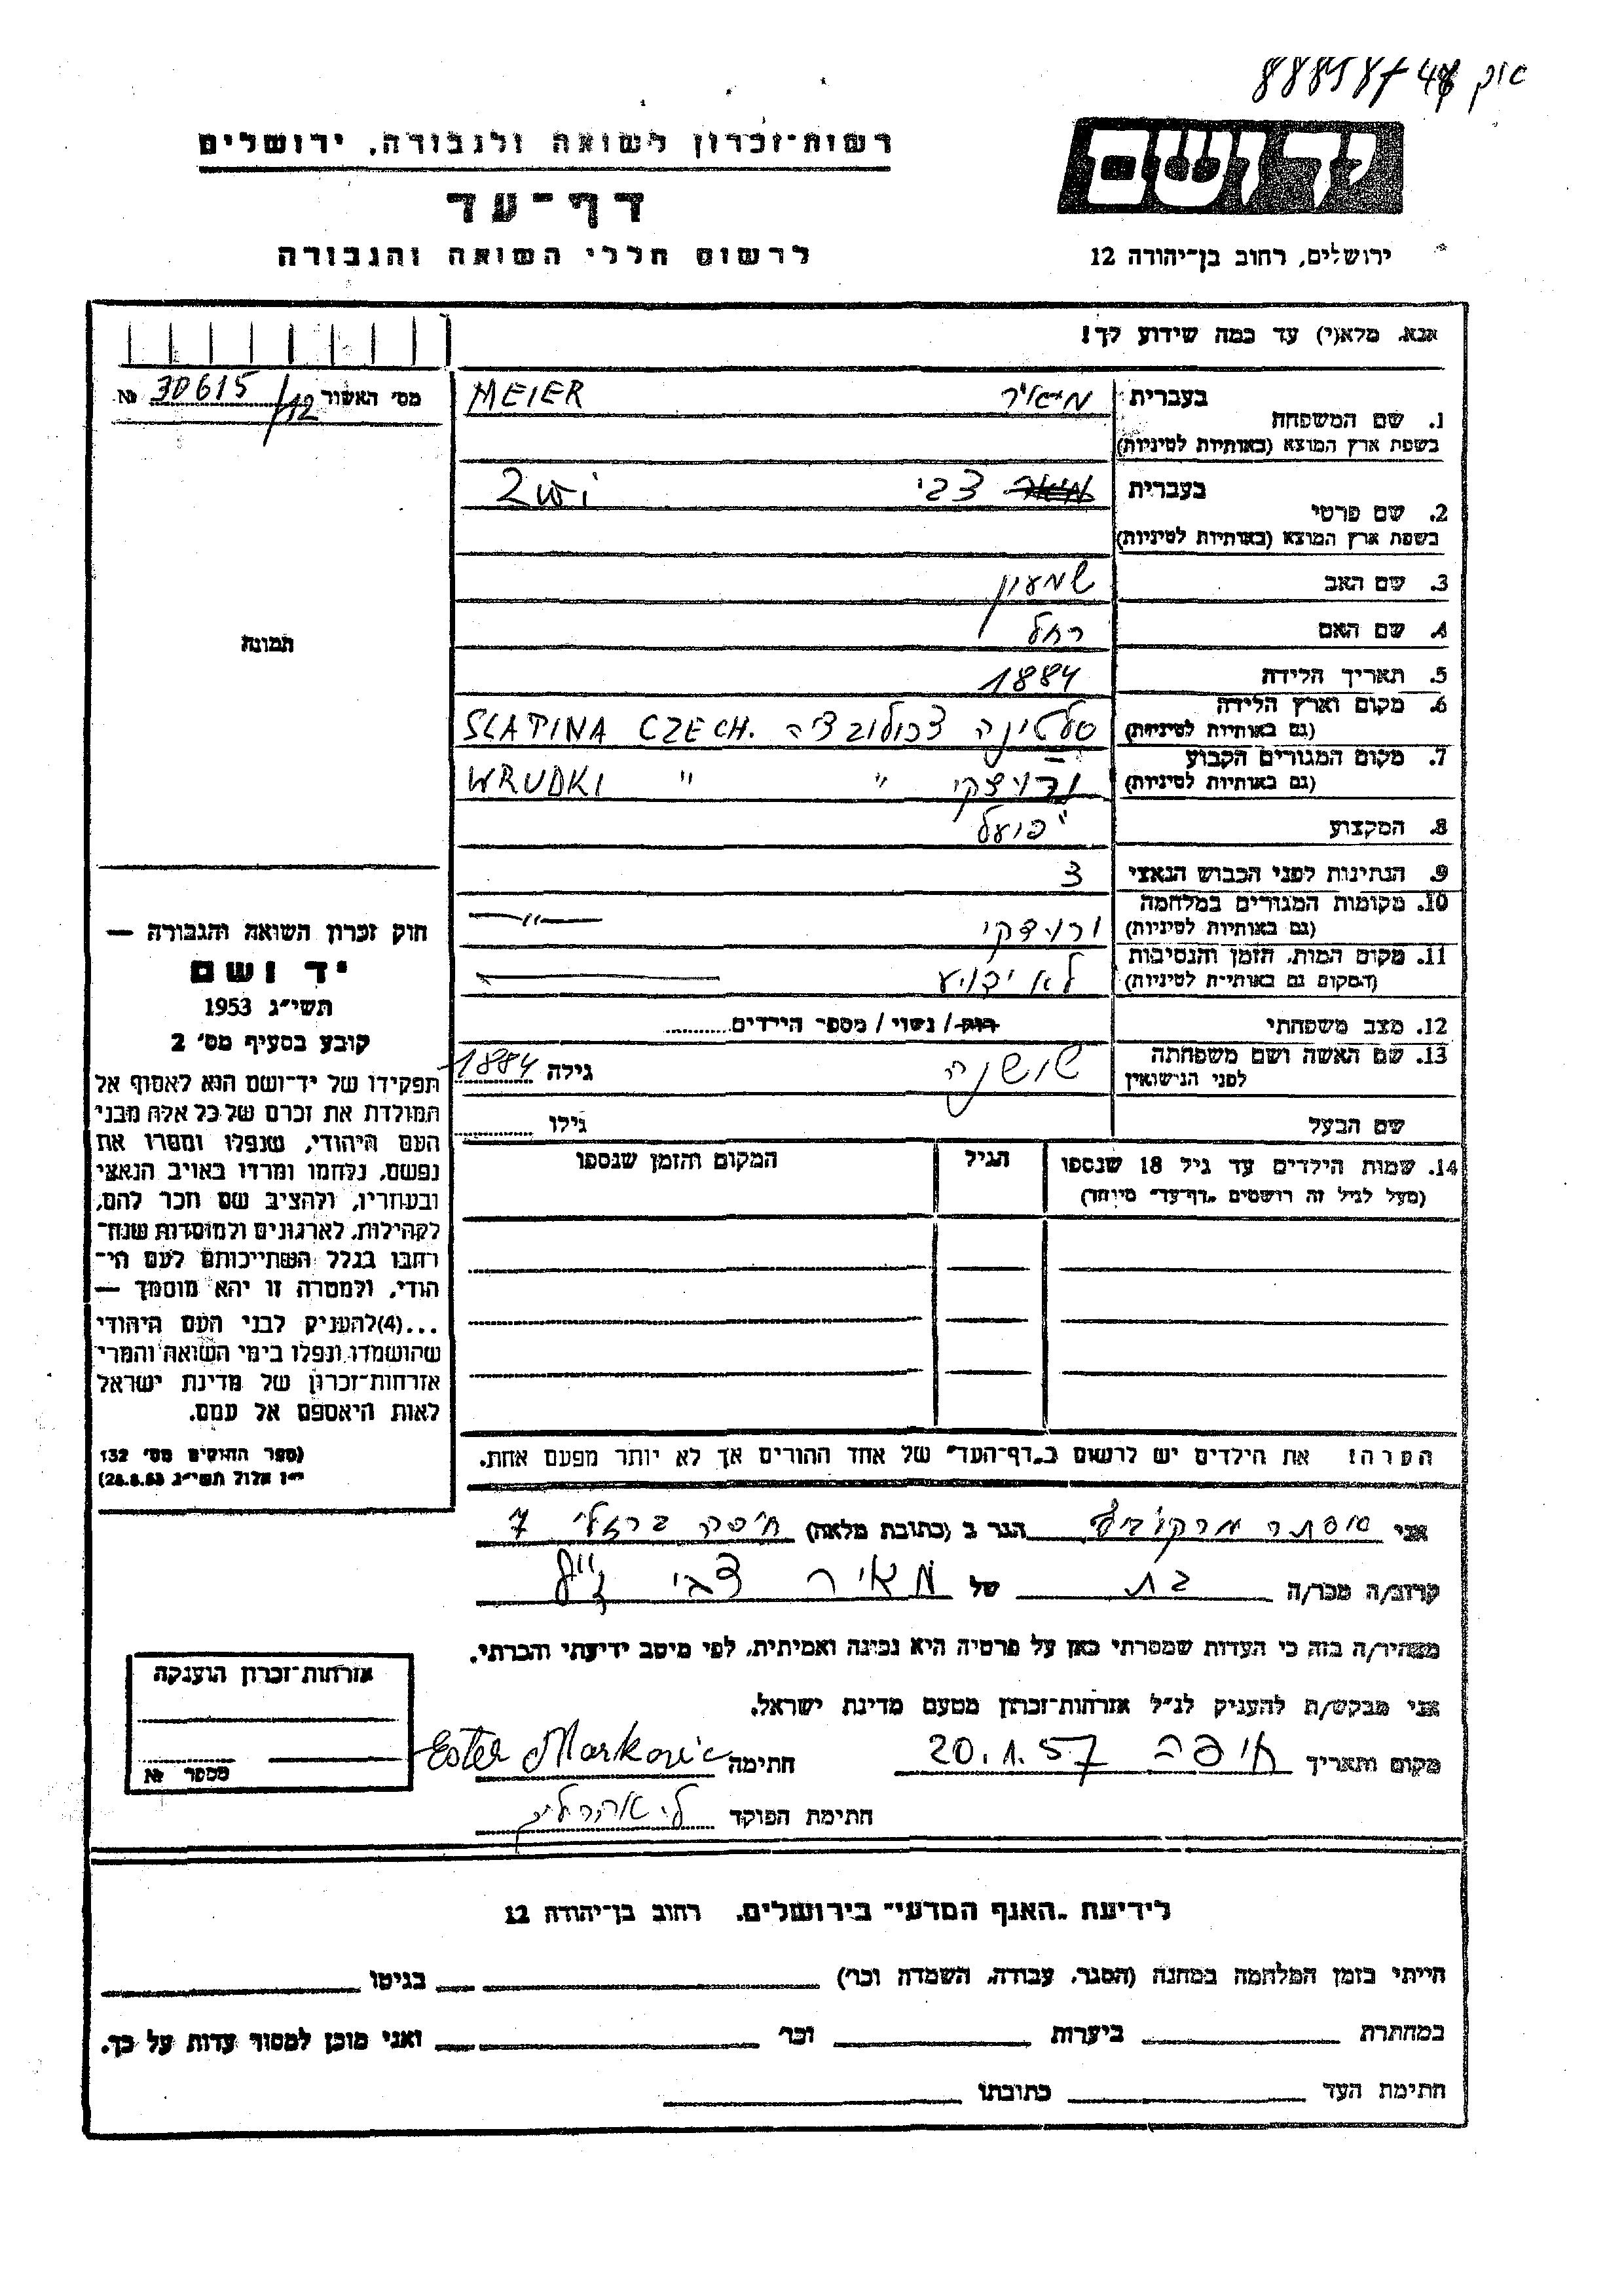 אוק 48 888587
רשות־זכרון לשואה ולגבורה, ירושלים
יד ושם
דף־עד
לרשום חללי השואה והגבורה
ירושלים, רחוב בן־יהודה 12
אנא, מלא(י) עד כמה שידוע לך!
מס׳ האשור № 30615/12
תמונה
1. שם המשפחה בעברית מיאיר MEIER
בשפת ארץ המוצא (באותיות לטיניות)
2. שם פרטי בעברית צבי Zwi
בשפת ארץ המוצא (באותיות לטיניות)
3. שם האב שמעון
4. שם האם רחל
5. תאריך הלידה 1884
6. מקום וארץ הלידה סלטינה SLATINA CZECH.
(גם באותיות לטיניות)
7. מקום המגורים הקבוע ורוצקי " WRUDKI "
(גם באותיות לטיניות)
8. המקצוע פועל
9. הנתינות לפני הכבוש הנאצי צ
10. מקומות המגורים במלחמה ורוצקי —״—
(גם באותיות לטיניות)
11. מקום המות, הזמן והנסיבות לא ידוע
(המקום גם באותיות לטיניות)
12. מצב משפחתי רווק / נשוי / מספר הילדים
13. שם האשה ושם משפחתה שושנה גילה 1884
לפני הנישואין
שם הבעל גילו
14. שמות הילדים עד גיל 18 שנספו הגיל המקום והזמן שנספו
(מעל לגיל זה רושמים „דף־עד״ מיוחד)
הערה: את הילדים יש לרשום ב„דף־העד״ של אחד ההורים אך לא יותר מפעם אחת.
חוק זכרון השואה והגבורה —
יד ושם
תשי״ג 1953
קובע בסעיף מס׳ 2
תפקידו של יד־ושם הוא לאסוף אל
המולדת את זכרם של כל אלה מבני
העם היהודי, שנפלו ומסרו את
נפשם, נלחמו ומרדו באויב הנאצי
ובעוזריו, ולהציב שם וזכר להם,
לקהילות, לארגונים ולמוסדות שנח־
רבו בגלל השתייכותם לעם הי־
הודי, ולמטרה זו יהא מוסמך —
...(4)להעניק לבני העם היהודי
שהושמדו ונפלו בימי השואה והמרי
אזרחות־זכרון של מדינת ישראל
לאות היאספם אל עמם.
(ספר החוקים מס׳ 132
י״ז אלול תשי״ג 28.8.53)
אני אסתר מרקוביץ הגר ב (כתובת מלאה) חיפה ברזלי 7
קרוב/ה מכר/ה בת של מאיר צבי ז״ל
מצהיר/ה בזה כי העדות שמסרתי כאן על פרטיה היא נכונה ואמיתית, לפי מיטב ידיעתי והכרתי.
אני מבקש/ת להעניק לנ״ל אזרחות־זכרון מטעם מדינת ישראל.
מקום ותאריך חיפה 20.1.57 חתימה Ester Markovic
חתימת הפוקד
אזרחות־זכרון הוענקה
מספר №
לידיעת „האגף המדעי״ בירושלים, רחוב בן־יהודה 12
הייתי בזמן המלחמה במחנה (הסגר, עבודה, השמדה וכו׳) בגיטו
במחתרת ביערות וכו׳ ואני מוכן למסור עדות על כך.
חתימת העד כתובתו